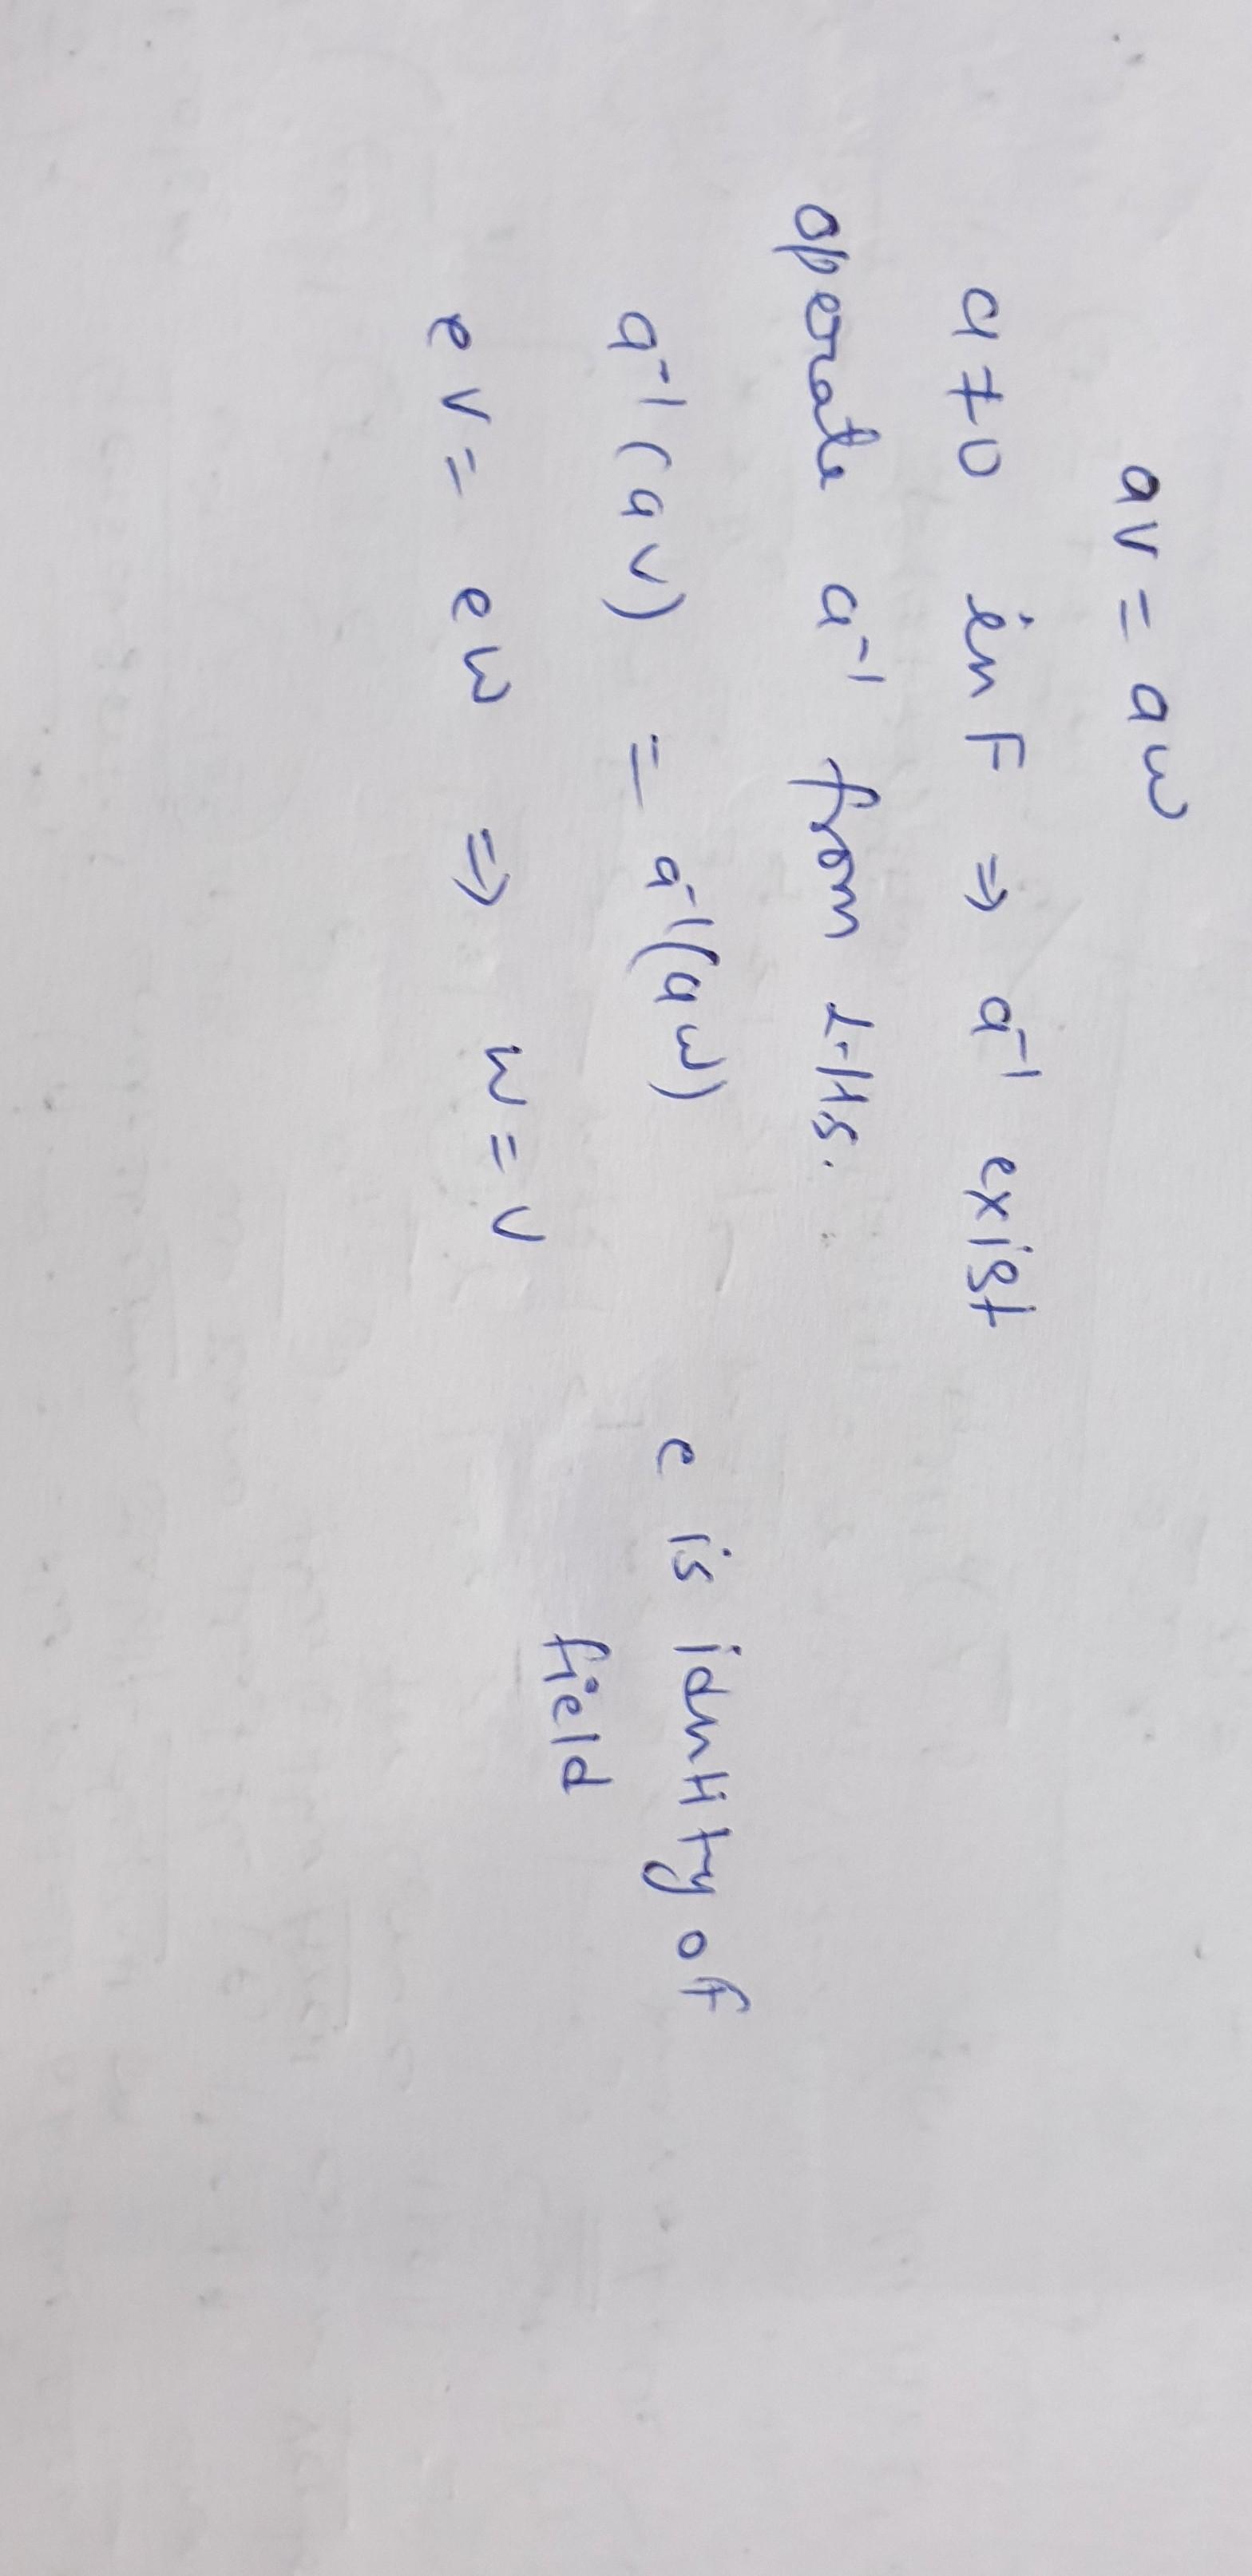 av = aw
a ≠ 0 in F ⇒ a⁻¹ exist
operate a⁻¹ from L.H.S.
a⁻¹(av) = a⁻¹(aw)
e is idntity of field
ev = ew ⇒ w = v